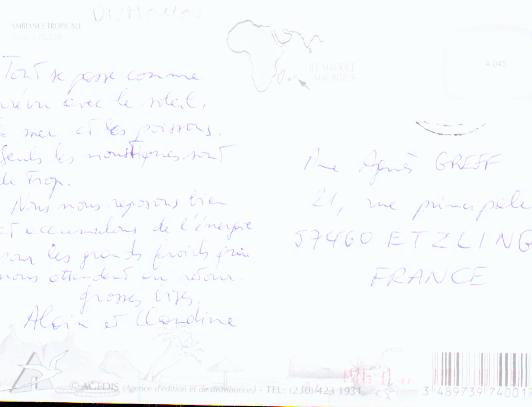 AMBIANCE TROPICALE
Tout se passe comme
prévu avec le soleil,
la mer et les poissons.
Seuls les moustiques sont
de trop.
Nous nous reposons bien
et accumulons de l'énergie
pour les grands froids qui
nous attendent au retour.
grosses bises.
Alain et Claudine
ILE MAURICE
MAURITIUS
A 045
Mme Agnès GREFF
21, rue principale
57460 ETZLING
FRANCE
© AGEDIS (Agence d'édition et de distribution) - TEL: (230) 423 1931
3 489739 74001